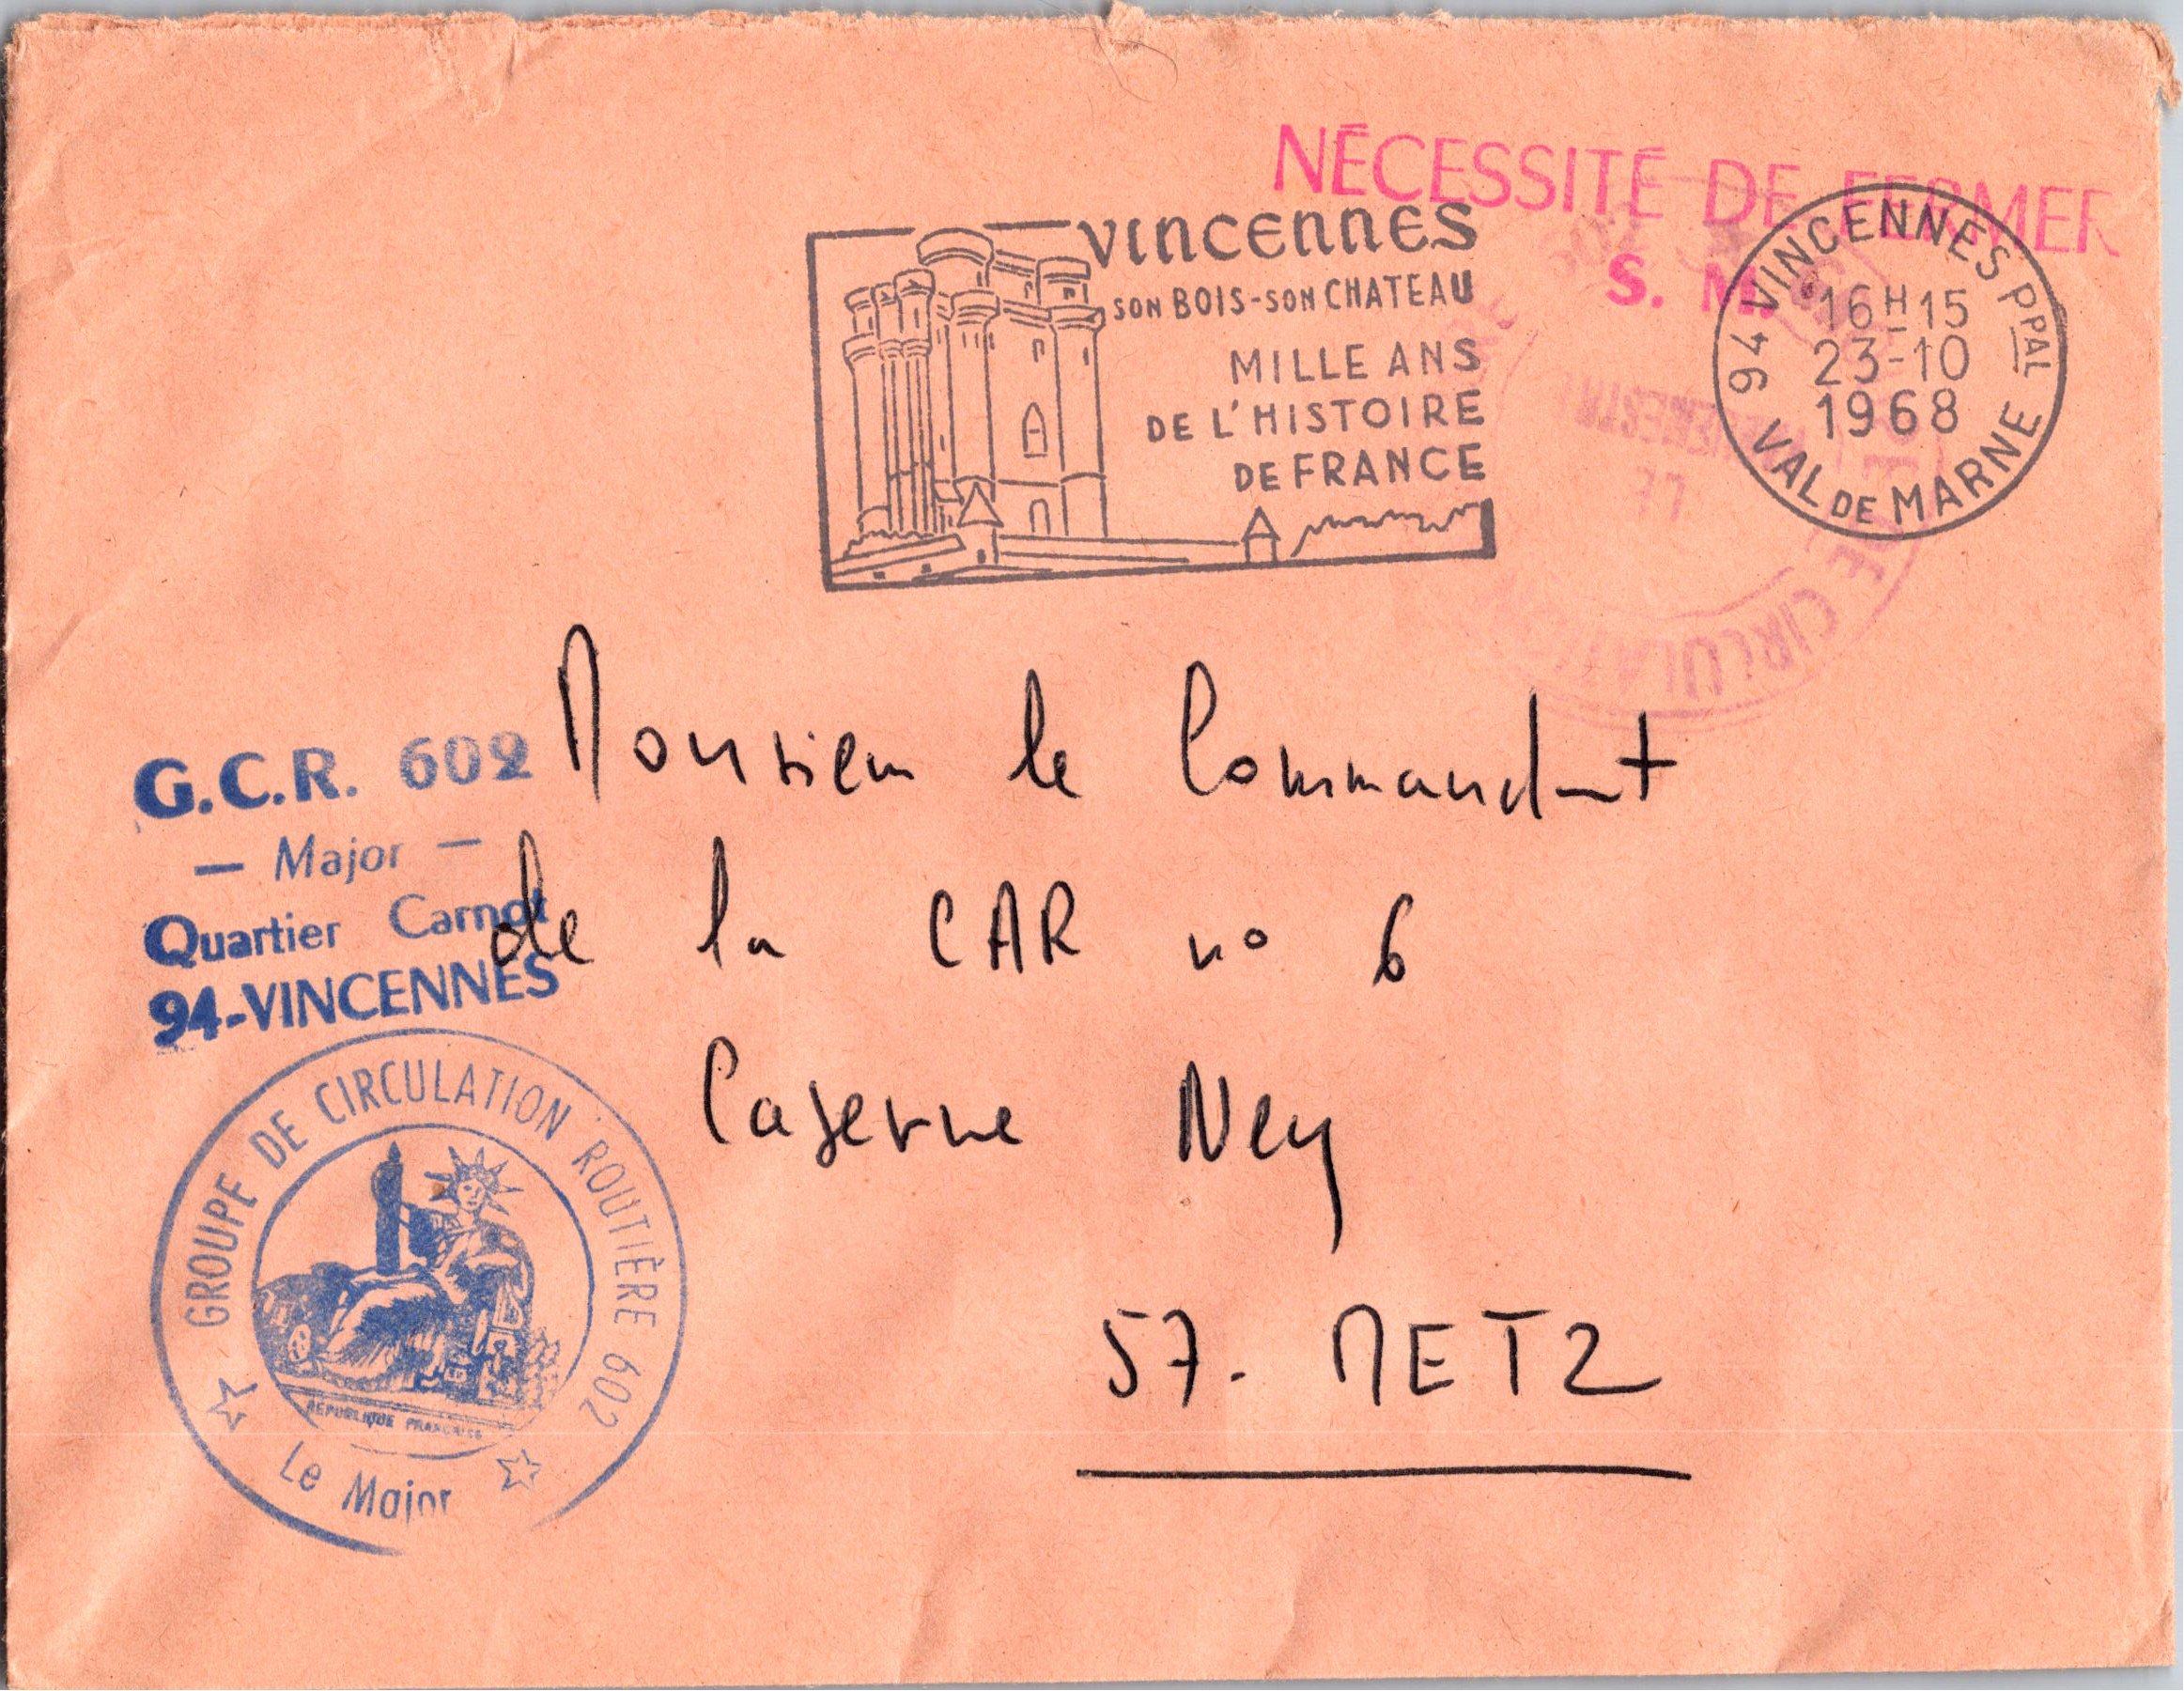 NÉCESSITÉ DE FERMER
S. M.
VINCENNES
SON BOIS-SON CHATEAU
MILLE ANS
DE L'HISTOIRE
DE FRANCE
94 VINCENNES PPAL
16H15
23-10
1968
VAL DE MARNE
DE CIRCULATION
G.C.R. 602
— Major —
Quartier Carnot
94-VINCENNES
Monsieur le Commandant
de la CAR no 6
Caserne Ney
57. METZ
GROUPE DE CIRCULATION ROUTIÈRE 602
RÉPUBLIQUE FRANÇAISE
Le Major